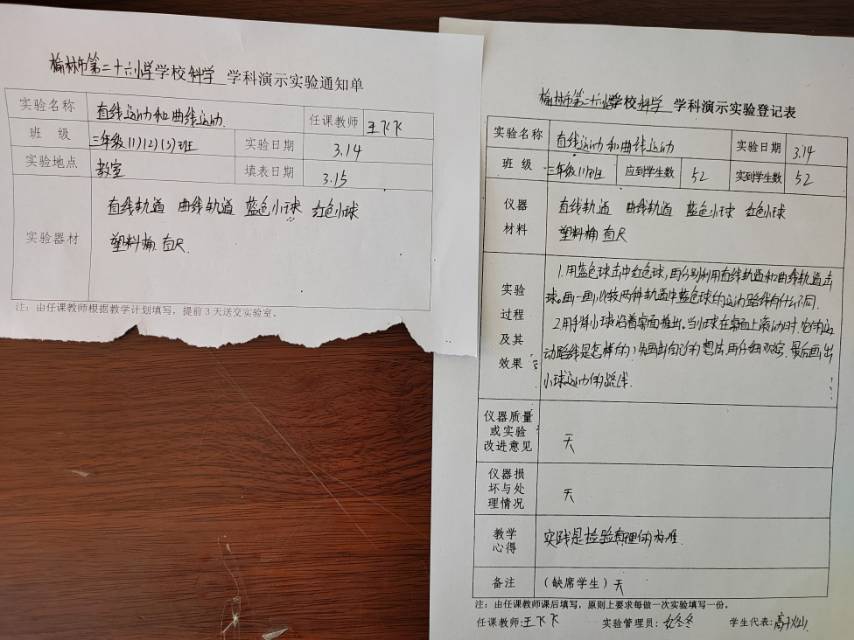 榆林市第二十六小学学校科学学科演示实验通知单
实验名称 直线运动和曲线运动. 任课教师 王飞飞
班 级 三年级(1)(2)(3)班 实验日期 3.14
实验地点 教室 填表日期 3.15
实验器材 直线轨道 曲线轨道 蓝色小球 红色小球
塑料桶. 直尺.
注:由任课教师根据教学计划填写,提前3天送交实验室。
榆林市第二十六小学学校科学 学科演示实验登记表
实验名称 直线运动和曲线运动 实验日期 3.14
班 级 三年级(1)班 应到学生数 52 实到学生数 52
仪器 直线轨道 曲线轨道 蓝色小球 红色小球
材料 塑料桶 直尺
1.用蓝色球击中红色球,再分别利用直线轨道和曲线轨道击
实验 球。画一画,比较两种轨道中蓝色球的运动路线有什么不同.
过程 2.用手将小球沿着桌面推出,当小球在桌面上滚动时,它的运
及其 动路线是怎样的?先画出自己的想法,再仔细观察.最后画出
效果 小球运动的路线.
仪器质量
或实验
改进意见 无
仪器损
坏与处
理情况 无
教学
心得 实践是检验真理的标准.
备注 (缺席学生) 无
注:由任课教师课后填写,原则上要求每做一次实验填写一份。
任课教师:王飞飞 实验管理员: 冬冬 学生代表: